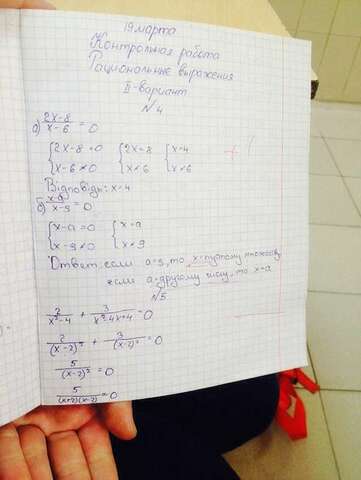 19 марта
Контрольная работа
Рациональные выражения
II-вариант
№4
а) (2x-8)/(x-6) = 0
{2x-8=0 {2x=8 {x=4
{x-6≠0 {x≠6 {x≠6
Відповідь: x=4
б) (x-a)/(x-9) = 0
{x-a=0 {x=a
{x-9≠0 {x≠9
Ответ: если a=9, то x-пустому множеству
если a-другому числу, то x=a
№5
2/(x²-4) + 3/(x²-4x+4) = 0
2/(x-2)² + 3/(x-2)² = 0
5/(x-2)² = 0
5/((x+2)(x-2)) = 0